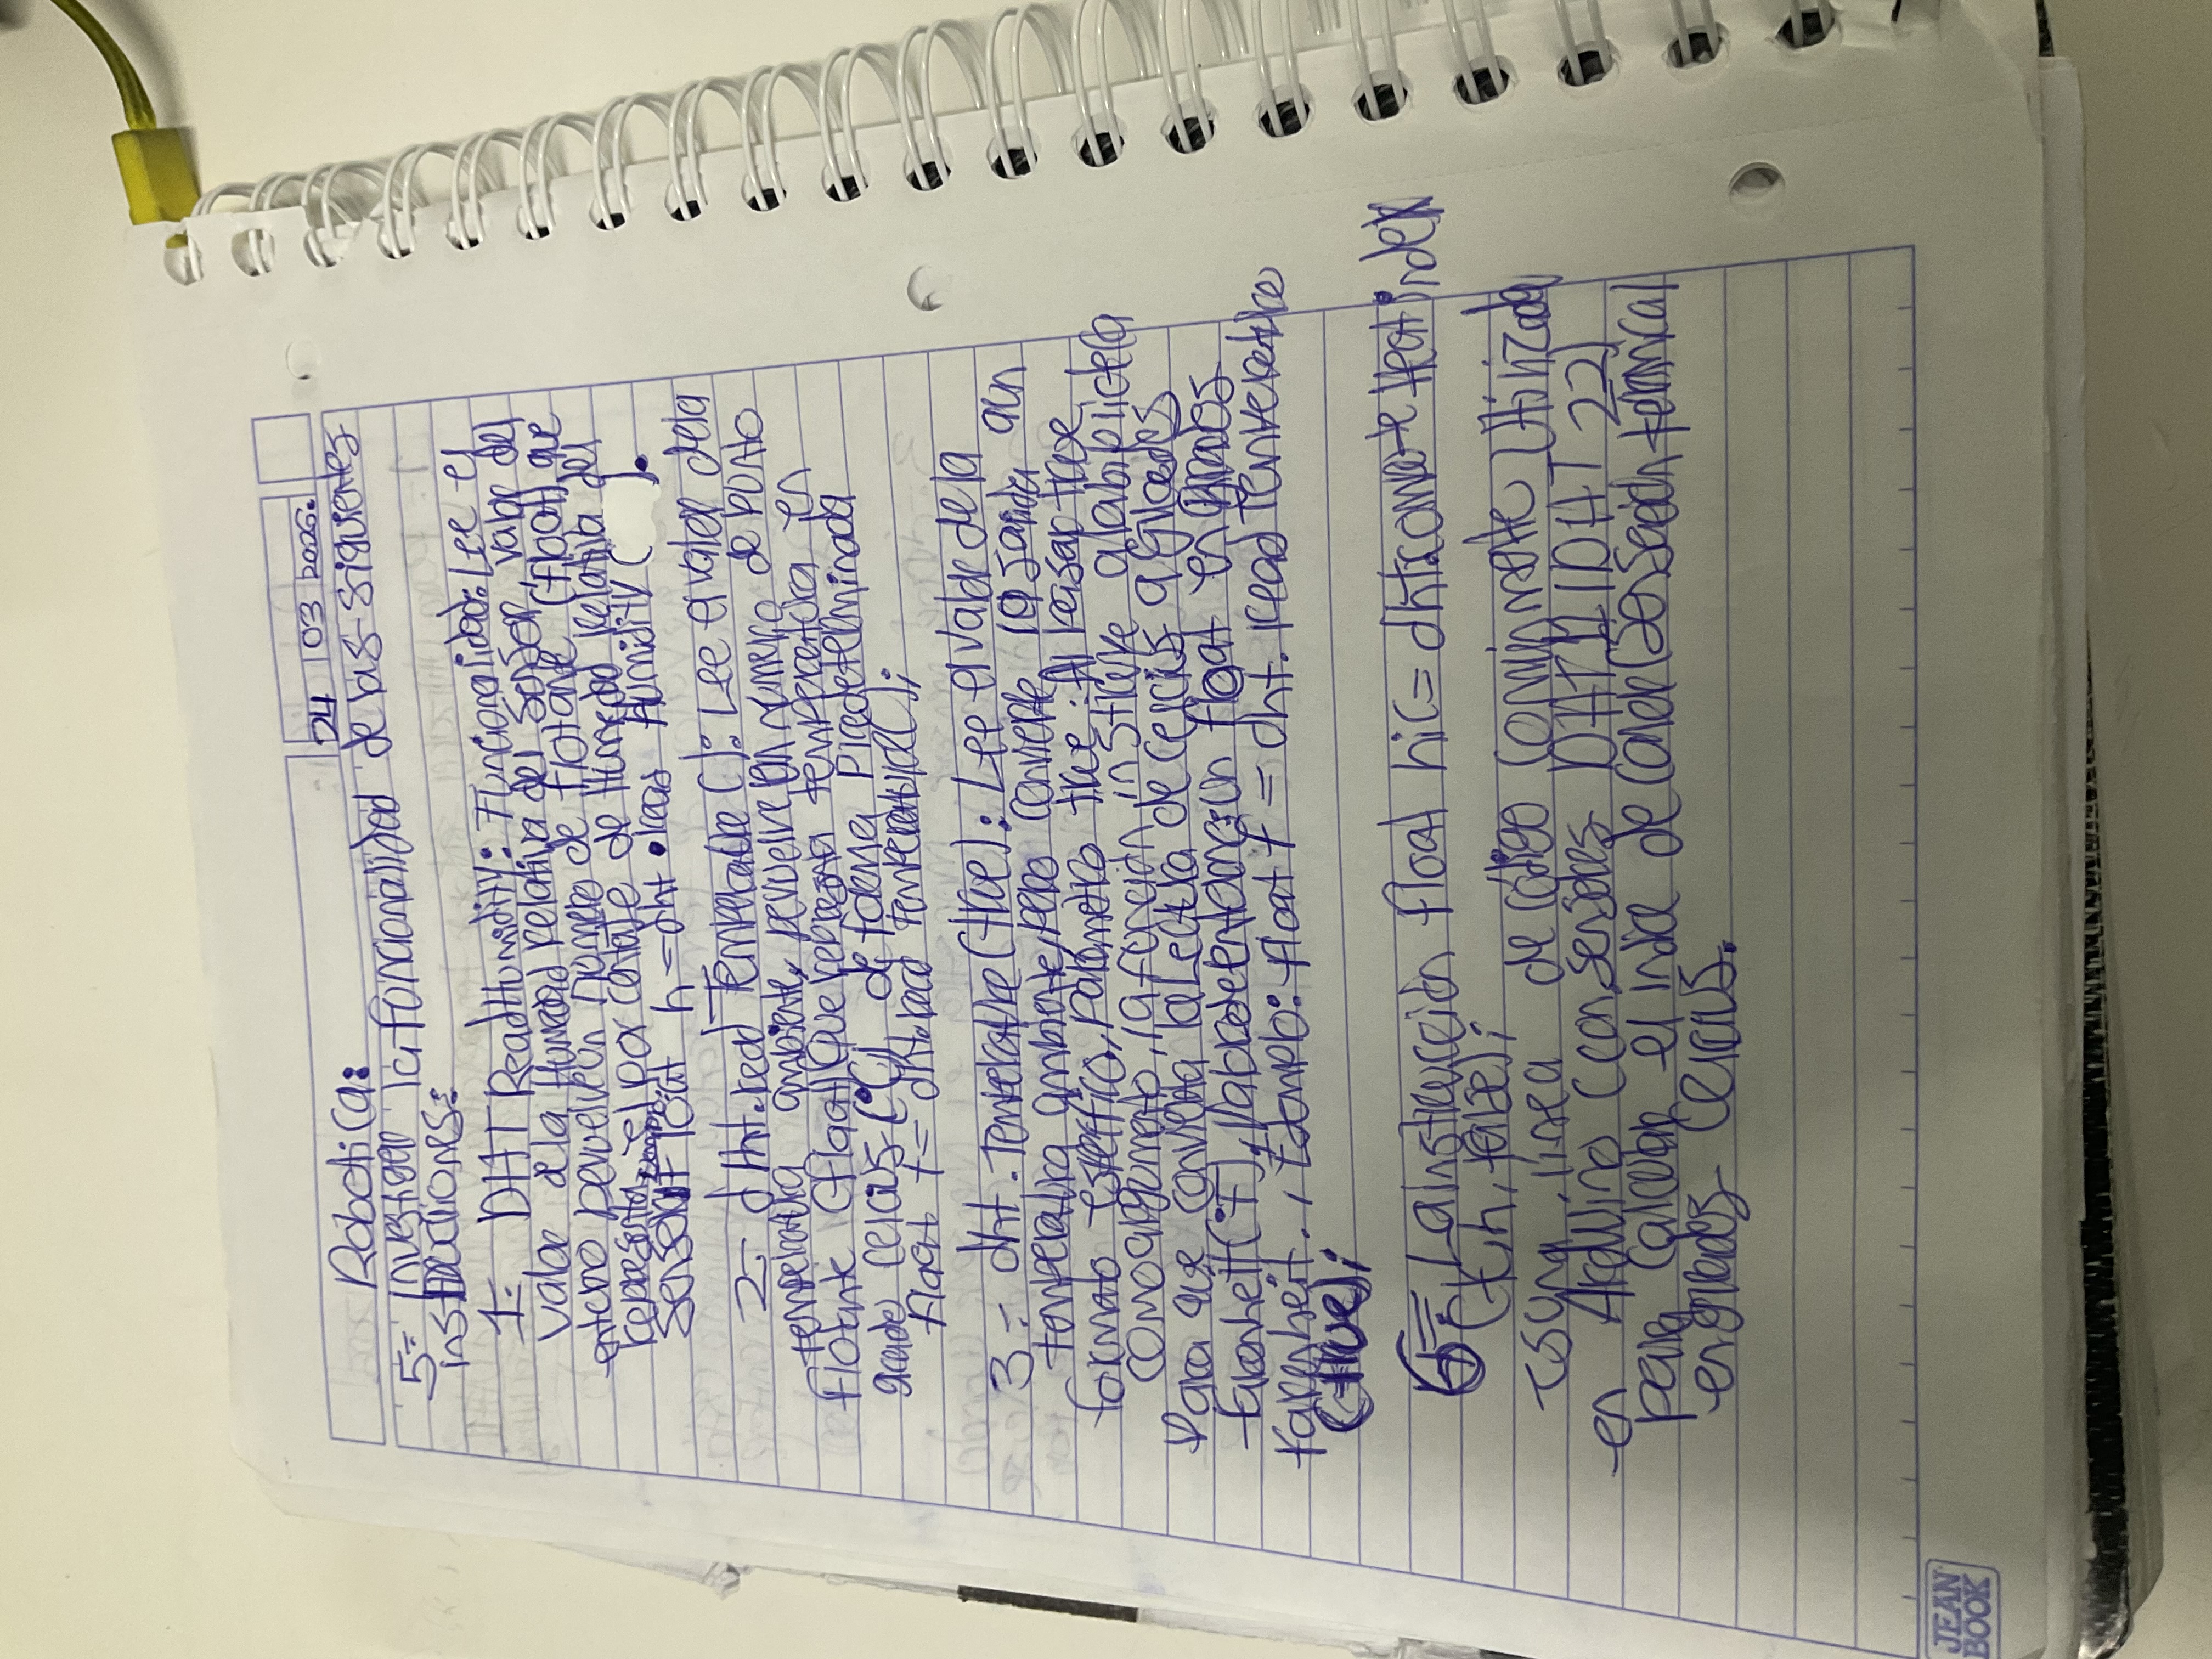 24 03 2026.
Robotica:
5= Investigar la funcionalidad de las siguientes
instrucciones:
1= DHT ReadHumidity: Funcionalidad: Lee el
valor de la Humedad relativa del sensor valor del
entero Devuelve un numero de Flotante (Float) que
representa el porcentaje de Humedad Relativa del
sensor float h = dht.read Humidity( ).
2= dht.read Temperature (): Lee el valor de la
temperatura ambiente, Devuelve un numero de punto
flotante (float) que representa temperatura En
grados celcius (°C) de forma Predeterminada
Float t = dht.read Temperature();
3= dht. Temperature (true): Lee el valor de la
temperatura ambiente, pero convierte la salida a un
formato Específico, parametro true: Al pasar true
como argumento, la función instruye a la biblioteca
para que convierta la Lectura de celcius a grados
Farenheit (°F)
Farenheit., Ejemplo: float f = dht. read Temperature
(true);
6= La instrucción float hic = dht.compute Heat index
(t, h, false);
Es una linea de código comúnmente Utilizada
en Arduino con sensores DHT11 (DHT 22)
para calcular el indice de calor (sensación termica)
en grados Celcius.
JEAN
BOOK